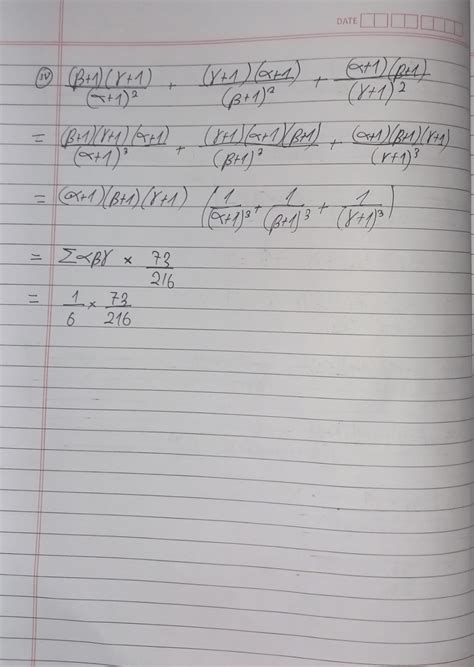 DATE
(iv) (β+1)(γ+1)/(α+1)² + (γ+1)(α+1)/(β+1)² + (α+1)(β+1)/(γ+1)²
= (β+1)(γ+1)(α+1)/(α+1)³ + (γ+1)(α+1)(β+1)/(β+1)³ + (α+1)(β+1)(γ+1)/(γ+1)³
= (α+1)(β+1)(γ+1) (1/(α+1)³ + 1/(β+1)³ + 1/(γ+1)³)
= Σαβγ × 73/216
= 1/6 × 73/216